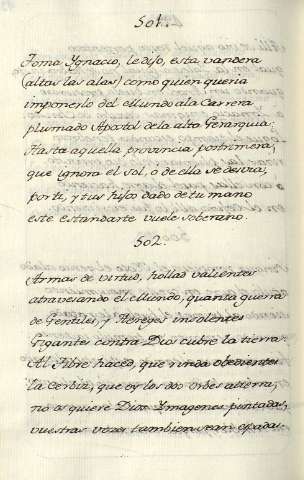 501.
Toma Ygnacio, le dijo, esta vandera
(altas las alas) como quien queria
imponerlo del Mundo a la Carrera
plumado Apostol de la alta Gerarquia:
Hasta aquella provincia postrimera,
que ignora el sol, o de ella se desvia,
por ti, y tus hijos dado de tu mano
este estandarte vuele soberano.
502.
Armas de virtud, hollad valientes
atravesando el Mundo, quanta guerra
de Gentiles, y Hereges insolentes
Gigantes contra Dios cubre la tierra.
Al Tibre haced, que rinda obedientes
la Cerbiz, que oy los dos orbes aterra,
no os quiere Dios Ymagenes pintadas,
vuestras vozes tambien sean espadas.